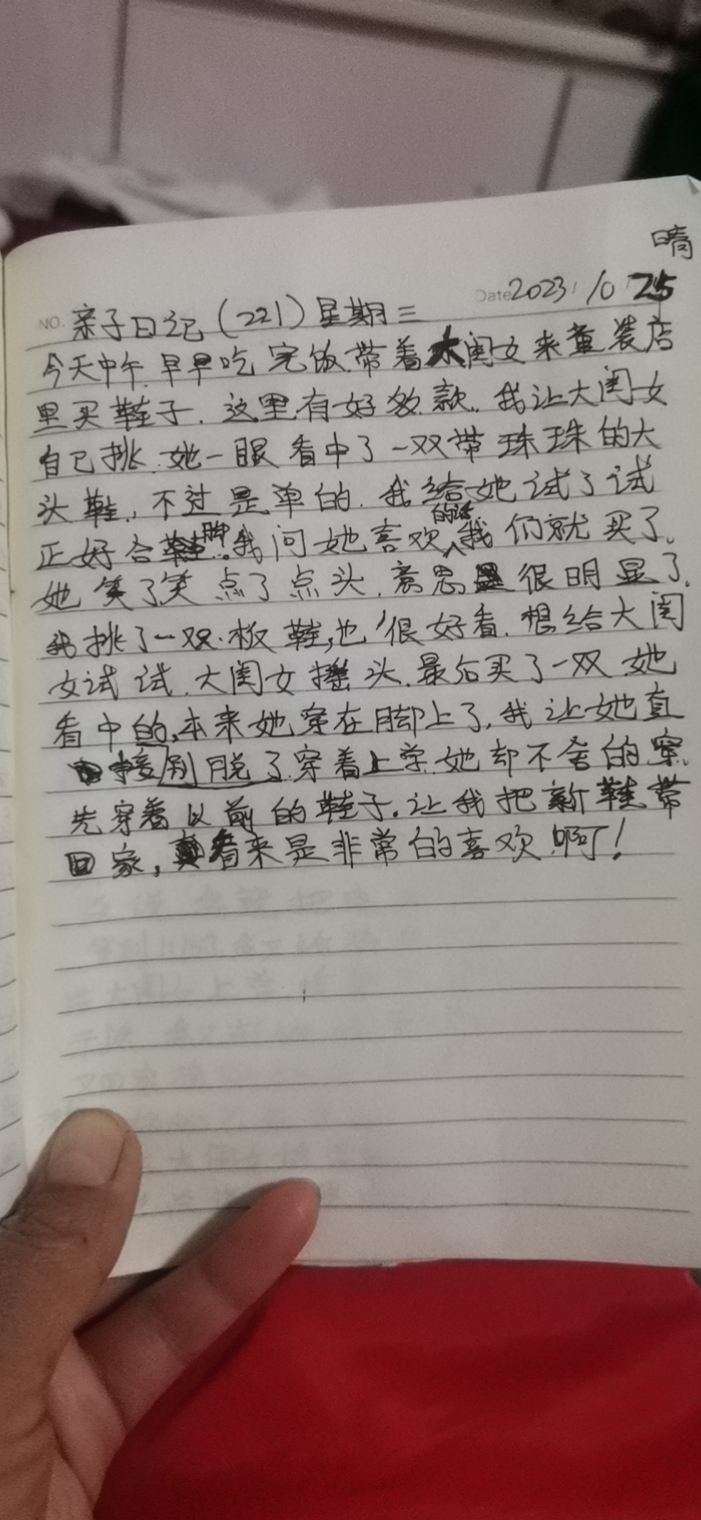 晴
NO. 亲子日记(221)星期三 Date 2023/10/25
今天中午.早早吃完饭.带着大闺女来童装店
里买鞋子.这里有好多款.我让大闺女
自己挑.她一眼看中了一双带珠珠的大
头鞋,不过是单的.我给她试了试
正好合脚.我问她喜欢的话我们就买了.
她笑了笑点了点头.意思很明显了.
我挑了一双板鞋,也很好看.想给大闺
女试试.大闺女摇头.最后买了一双她
看中的,本来她穿在脚上了,我让她直
接别脱了.穿着上学.她却不舍的穿.
先穿着以前的鞋子.让我把新鞋带
回家,看来是非常的喜欢啊!